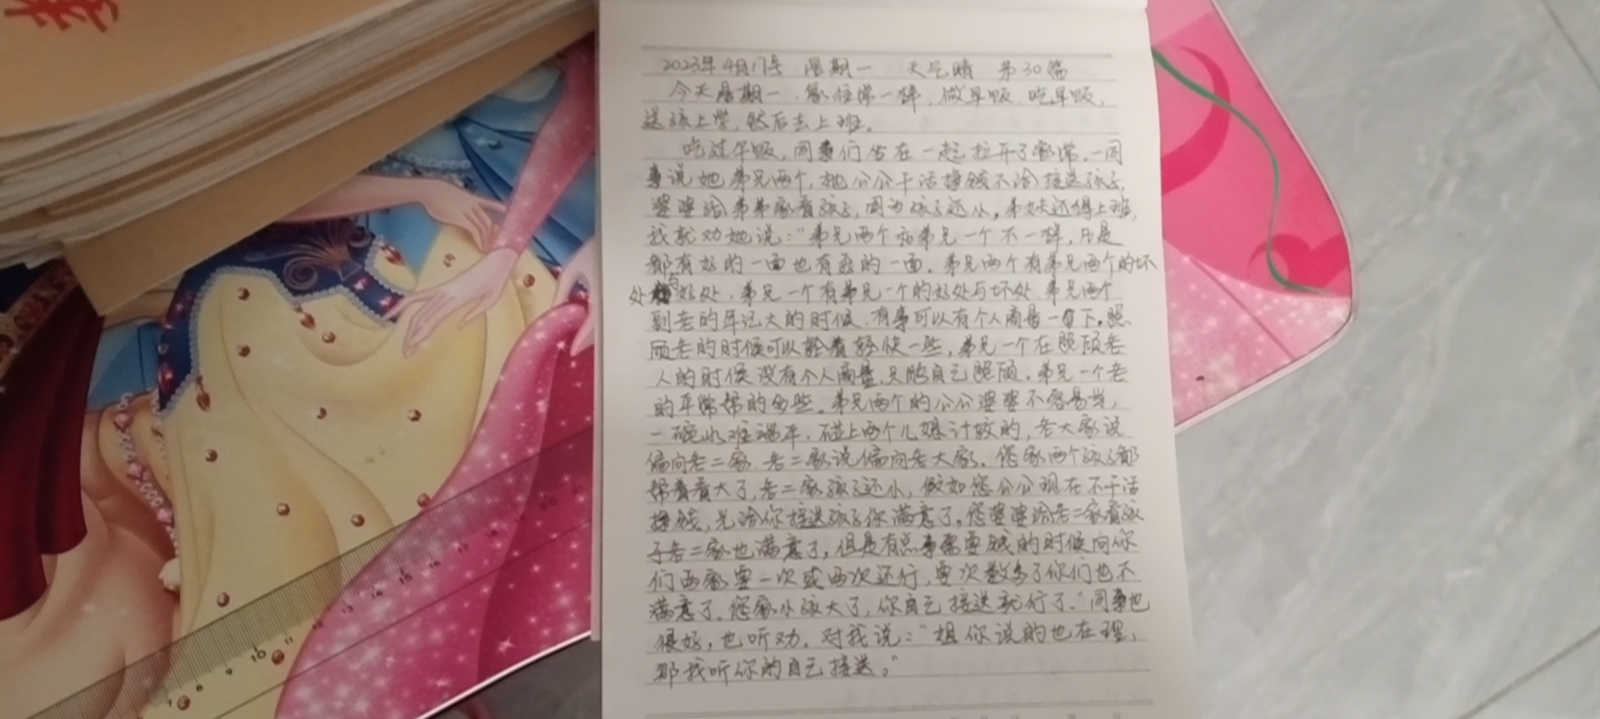 2023年4月17号 星期一 天气晴 第30篇
今天星期一,象往常一样,做早饭,吃早饭,
送孩上学,然后去上班。
吃过午饭,同事们坐在一起拉开了家常,一同
事说她弟兄两个,她公公干活挣钱不给接送孩子,
婆婆给弟弟家看孩子,因为孩子还小,弟妹还得上班,
我就劝她说:“弟兄两个和弟兄一个不一样,凡是
都有好的一面也有歪的一面。弟兄两个有弟兄两个的坏
处与好处,弟兄一个有弟兄一个的好处与坏处,弟兄两个
到老的年纪大的时候,有事可以有个人商量一下。照
顾老的时候可以轻快一些,弟兄一个在照顾老
人的时候没有个人商量,只能自己照顾。弟兄一个老
的平常帮的多些。弟兄两个的公公婆婆不容易当,
一碗水难端平,碰上两个儿媳计较的,老大家说
偏向老二家,老二家说偏向老大家。您家两个孩子都
帮着看大了,老二家孩子还小,假如您公公现在不干活
挣钱,光给你接送孩子你满意了。您婆婆给老二家看孩
子老二家也满意了,但是有点事需要钱的时候向你
们两家要一次或两次还行,要次数多了你们也不
满意了。您家小孩大了,你自己接送就行了。”同事也
很好,也听劝,对我说:“姐你说的也在理,
那我听你的自己接送。”
7 8 9 10 11 12 13 14 15 16 17 20